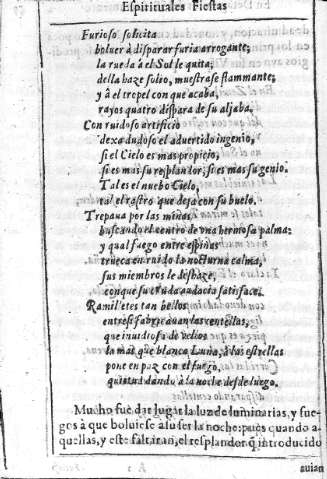 Espirituales Fiestas
Furioso solicita
boluer à disparar furia arrogante;
la rueda à el Sol le quita,
della haze solio, muestrase flammante;
y à el tropel con que acaba,
rayos quatro dispara de su aljaba.
Con ruidoso artificio
dexa dudoso el aduertido ingenio,
si el Cielo es mas propicio,
si es mas su resplandor, si es mas su genio.
Tal es el nuebo Cielo,
tal el rastro que deja con su buelo.
Trepaua por las minas
buscando el centro de vna hermosa palma:
y qual fuego entre espinas
trueca en ruido la nocturna calma,
sus miembros le deshaze,
conque su cruda audacia satisface.
Ramilletes tan bellos
entresi fabricauan las centellas,
que inuidiosa de vellos
la mas que blanca Luna, à las estrellas
pone en paz con el fuego,
quietud dando à la noche desde luego.
Mucho fuè dar lugar la luz de luminarias, y fue-
gos à que boluiese a su ser la noche: pues quando a-
quellas, y este faltaran, el resplandor q̃ introducido
auian